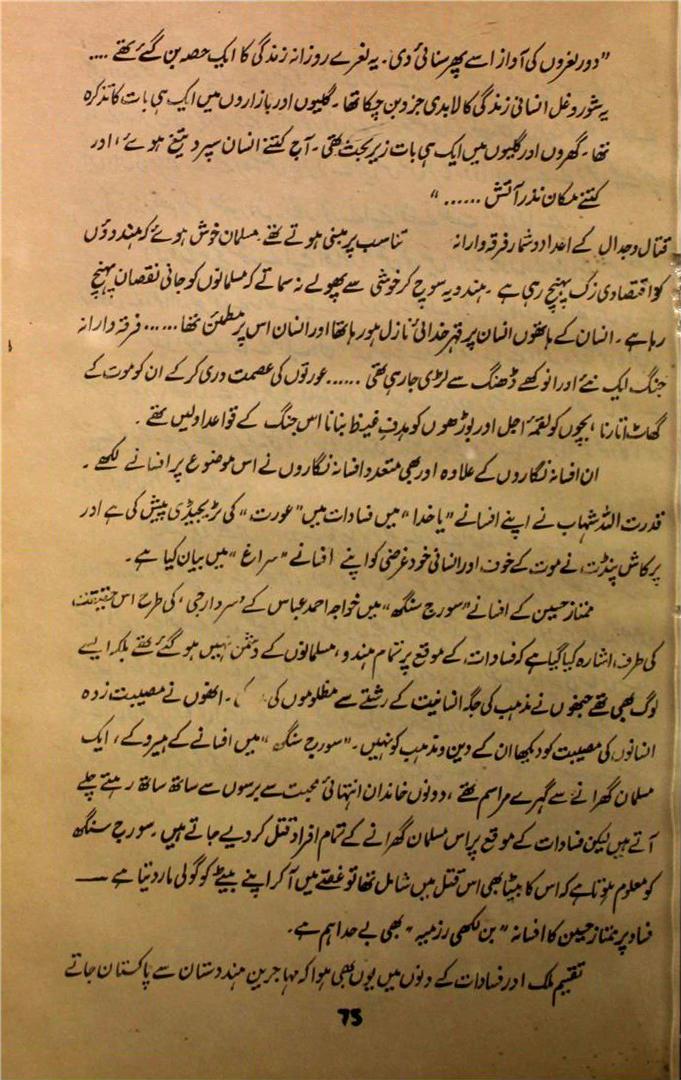 "دور نعروں کی آواز اسے پھر سنائی دی۔ یہ نعرے روزانہ زندگی کا ایک حصہ بن گئے تھے ....
یہ شور و غل انسانی زندگی کا لابدی جزو بن چکا تھا۔ گلیوں اور بازاروں میں ایک ہی بات کا تذکرہ
تھا۔ گھروں اور گلیوں میں ایک ہی بات زیر بحث تھی۔ آج کتنے انسان سپرد تیغ ہوئے، اور
کتنے مکان نذر آتش ......"
قتال و جدال کے اعداد و شمار فرقہ وارانہ تناسب پر مبنی ہوتے تھے۔ مسلمان خوش ہوئے کہ ہندوؤں
کو اقتصادی زک پہنچ رہی ہے۔ ہندو یہ سوچ کر خوشی سے پھولے نہ سماتے کہ مسلمانوں کو جانی نقصان پہنچ
رہا ہے۔ انسان کے ہاتھوں انسان پر قہر خدائی نازل ہو رہا تھا اور انسان اس پر مطمئن تھا...... فرقہ وارانہ
جنگ ایک نئے اور انوکھے ڈھنگ سے لڑی جا رہی تھی ...... عورتوں کی عصمت دری کر کے ان کو موت کے
گھاٹ اتارنا، بچوں کو لقمۂ اجل اور بوڑھوں کو ہدفِ غیظ بنانا اس جنگ کے قواعد اولیں تھے۔
ان افسانہ نگاروں کے علاوہ اور بھی متعدد افسانہ نگاروں نے اس موضوع پر افسانے لکھے۔
قدرت اللہ شہاب نے اپنے افسانے "یا خدا" میں فسادات میں "عورت" کی ٹریجیڈی پیش کی ہے اور
پرکاش پنڈت نے موت کے خوف اور انسانی خود غرضی کو اپنے افسانے "سراغ" میں بیان کیا ہے۔
ممتاز حسین کے افسانے "سورج سنگھ" میں خواجہ احمد عباس کے 'سردار جی' کی طرح اس حقیقت
کی طرف اشارہ کیا گیا ہے کہ فسادات کے موقع پر تمام ہندو، مسلمانوں کے دشمن نہیں ہو گئے تھے بلکہ ایسے
لوگ بھی تھے جنھوں نے مذہب کی جگہ انسانیت کے رشتے سے مظلوموں کی ۔ انھوں نے مصیبت زدہ
انسانوں کی مصیبت کو دیکھا ان کے دین و مذہب کو نہیں۔ "سورج سنگھ" میں افسانے کے ہیرو کے، ایک
مسلمان گھرانے سے گہرے مراسم تھے، دونوں خاندان انتہائی محبت سے برسوں سے ساتھ ساتھ رہتے چلے
آتے ہیں لیکن فسادات کے موقع پر اس مسلمان گھرانے کے تمام افراد قتل کر دیے جاتے ہیں۔ سورج سنگھ
کو معلوم ہوتا ہے کہ اس کا بیٹا بھی اس قتل میں شامل تھا تو غصے میں آ کر اپنے بیٹے کو گولی مار دیتا ہے ——
فساد پر ممتاز حسین کا افسانہ "بن لکھی رزمیہ" بھی بے حد اہم ہے۔
تقسیم ملک اور فسادات کے دنوں میں یوں بھی ہوا کہ مہاجرین ہندوستان سے پاکستان جاتے
75